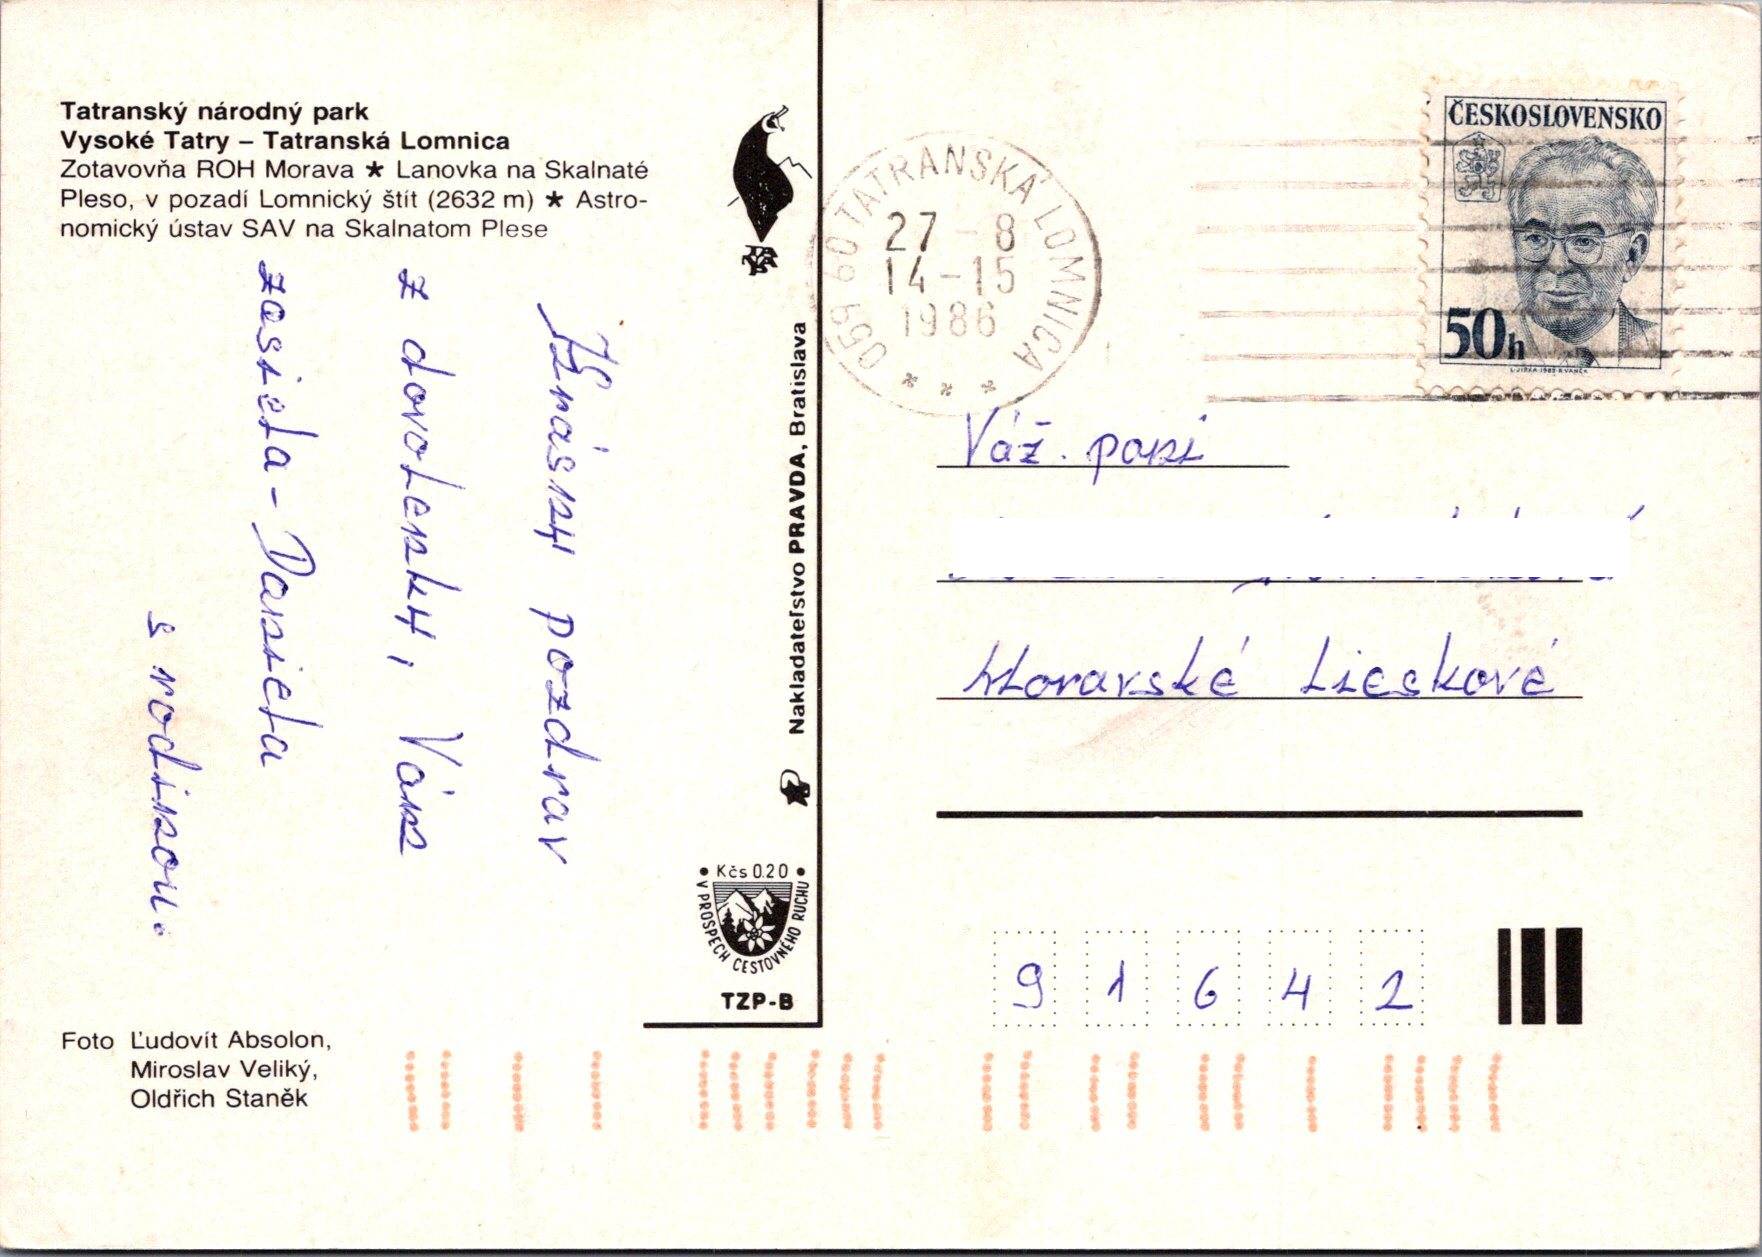 Tatranský národný park
Vysoké Tatry – Tatranská Lomnica
Zotavovňa ROH Morava ★ Lanovka na Skalnaté
Pleso, v pozadí Lomnický štít (2632 m) ★ Astro-
nomický ústav SAV na Skalnatom Plese
Krásny pozdrav
z dovolenky, Vám
zasiela - Daniela
s rodinou.
Foto Ľudovít Absolon,
Miroslav Veliký,
Oldřich Staněk
Nakladateľstvo PRAVDA, Bratislava
Kčs 0.20
V PROSPECH CESTOVNÉHO RUCHU
TZP-B
059 60 TATRANSKÁ LOMNICA
27 - 8
14-15
1986
ČESKOSLOVENSKO
50h
Váž. pani
Moravské Lieskové
91642